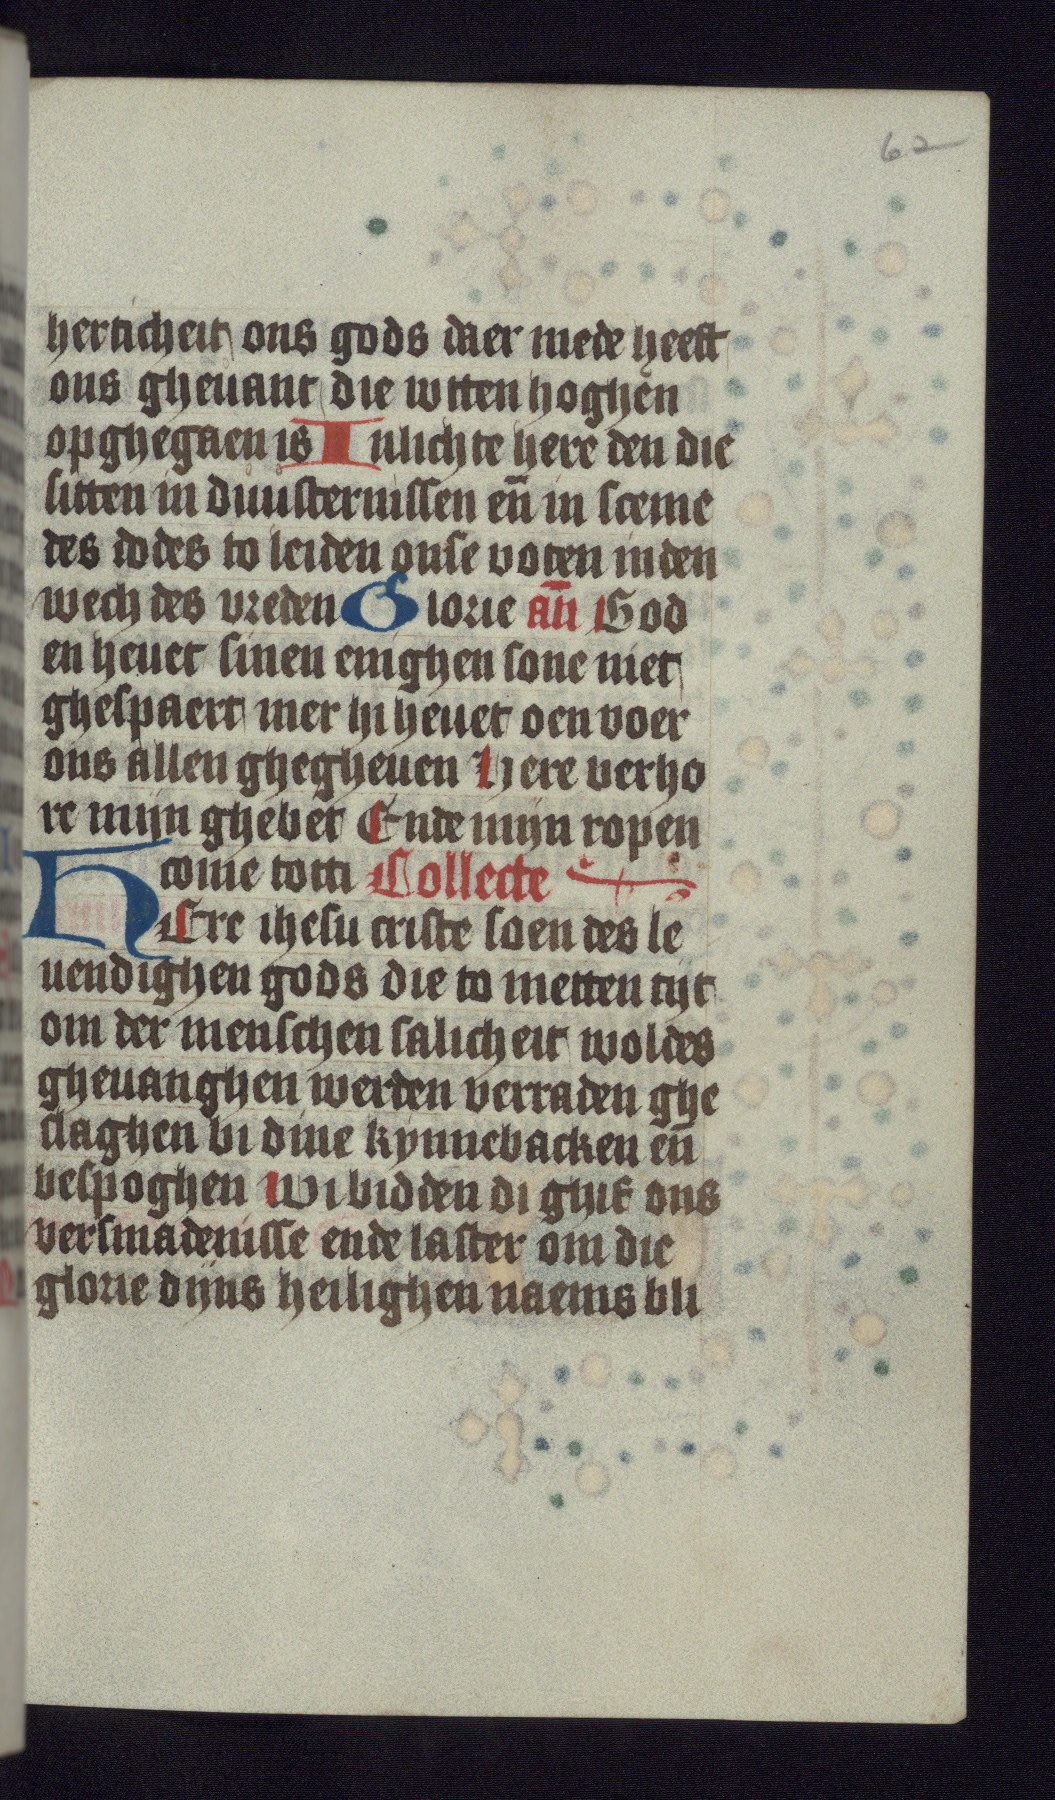 62
herticheit ons gods daer mede heeft
ons gheuant die wtten hoghen
opghegaen is Inlichte here den die
sitten in duusternissen en̄ in sceme
des dodes to leiden onse voten inden
wech des vreden Glorie an̄ God
en heuet sinen enighen sone niet
ghespaert mer hi heuet oen voer
ons allen ghegheuen Here verho
re mijn ghebet Ende mijn ropen
come totti Collecte
HEre ihesu criste soen des le
uendighen gods die to metten tijt
om der menschen salicheit woldes
gheuanghen werden verraden ghe
slaghen bi dine kynnebacken en̄
bespoghen Wi bidden di ghif ons
versmadenisse ende laster om die
glorie dijns heilighen naems bli